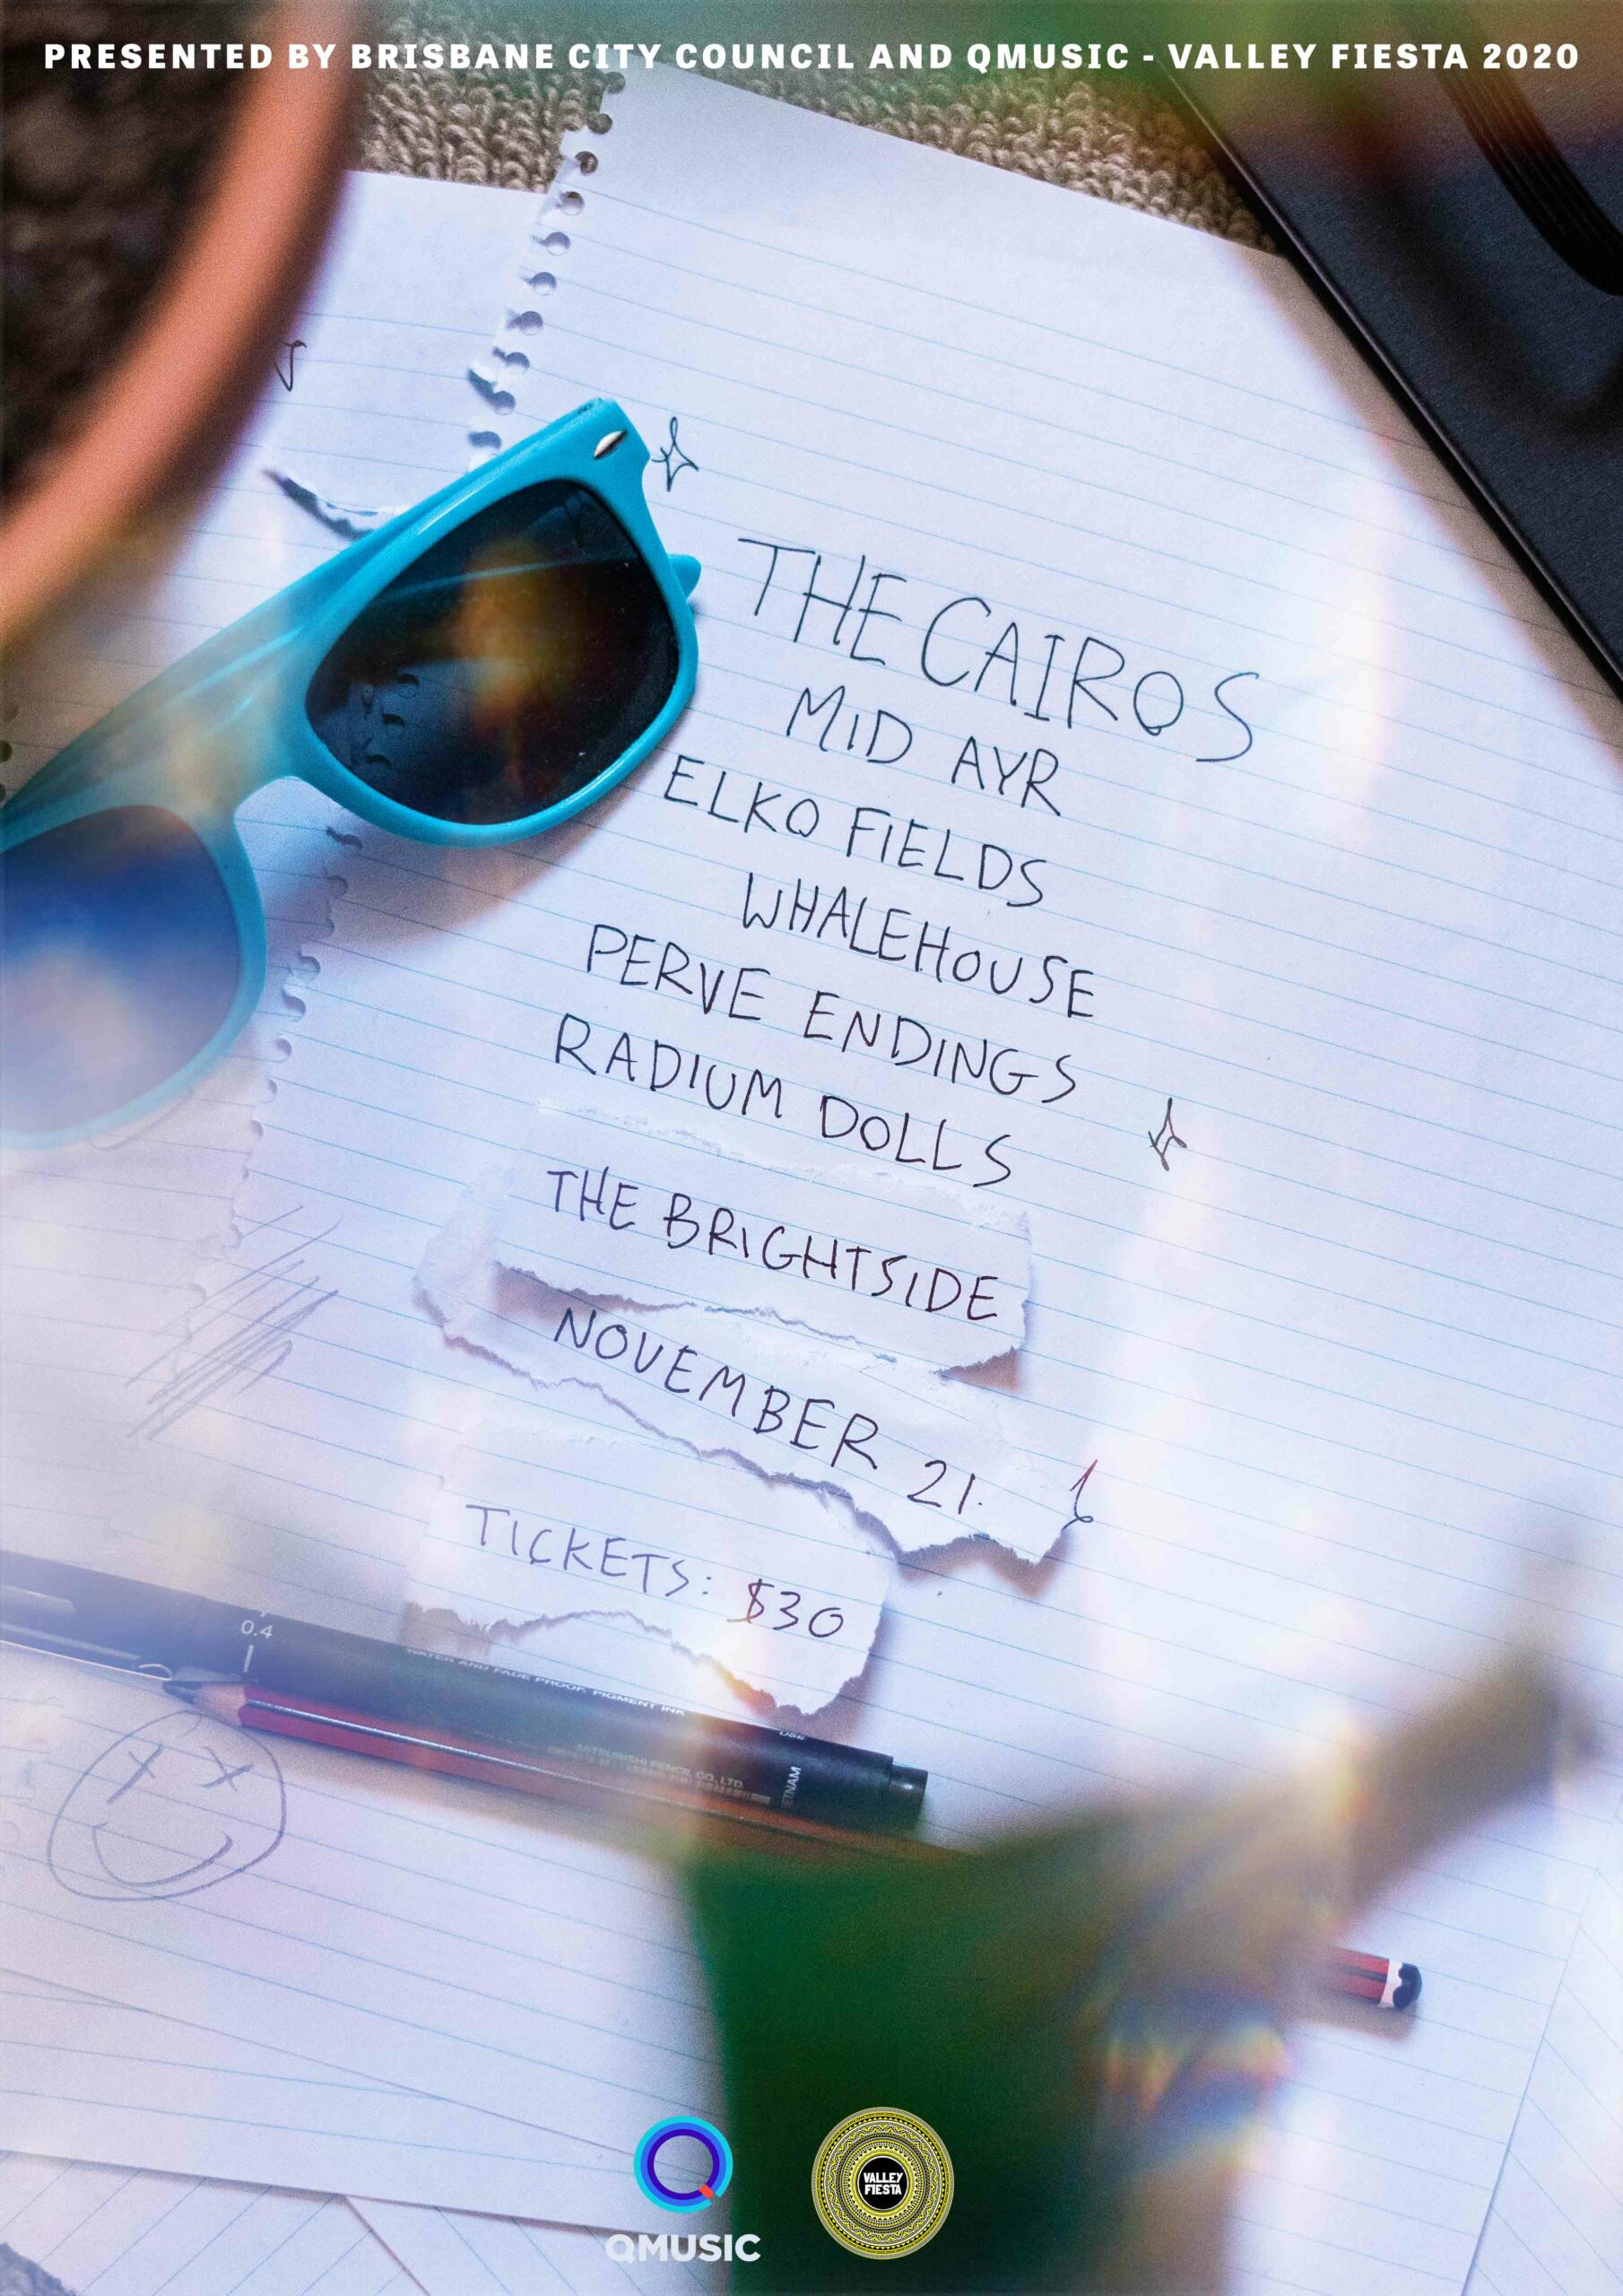 PRESENTED BY BRISBANE CITY COUNCIL AND QMUSIC - VALLEY FIESTA 2020
THE CAIROS
MID AYR
ELKO FIELDS
WHALEHOUSE
PERVE ENDINGS
RADIUM DOLLS
THE BRIGHTSIDE
NOVEMBER 21.
TICKETS: $30
0.4
WATER AND FADE PROOF, PIGMENT INK
MITSUBISHI PENCIL CO., LTD.
QMUSIC
VALLEY
FIESTA